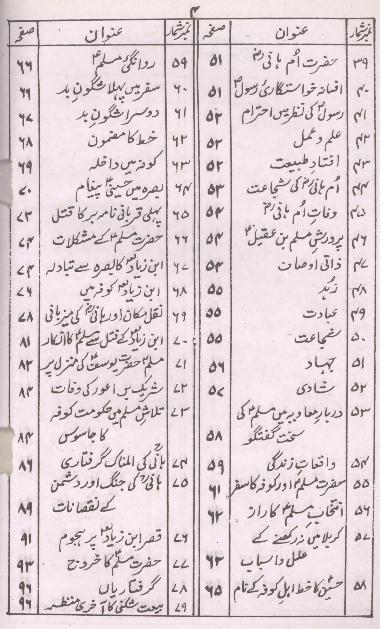 ۴
نمبر شمار عنوان صفحہ
۳۹ حضرت اُم ہانی رض ۵۱
۴۰ افسانہ خواستگاری رسول ص ۵۱
۴۱ رسول ص کی نظر میں احترام ۵۲
۴۲ علم و عمل ۵۲
۴۳ افتادِ طبیعت ۵۲
۴۴ اُم ہانی رض کی شجاعت ۵۳
۴۵ وفاتِ اُم ہانی رض ۵۴
۴۶ پرورشِ مسلم بن عقیل ع ۵۴
۴۷ ذاتی اوصاف ۵۴
۴۸ زہد ۵۵
۴۹ عبادت ۵۵
۵۰ شجاعت ۵۵
۵۱ جہاد ۵۶
۵۲ شادی ۵۷
۵۳ دربارِ معاویہ میں مسلم ع کی
سخت گفتگو ۵۸
۵۴ واقعاتِ زندگی ۵۹
۵۵ حضرت مسلم ع اور کوفہ کا سفر ۶۱
۵۶ انتخابِ مسلم ع کا راز ۶۲
۵۷ کربلا میں نہ رکھنے کے
علل و اسباب ۶۳
۵۸ حسین ع کا خط اہلِ کوفہ کے نام ۶۵
نمبر شمار عنوان صفحہ
۵۹ روانگیٔ مسلم ع ۶۶
۶۰ سفر میں پہلا شگونِ بد ۶۶
۶۱ دوسرا شگونِ بد ۶۷
۶۲ خط کا مضمون ۶۸
۶۳ کوفہ میں داخلہ ۶۹
۶۴ بصرہ میں حسینی پیغام ۷۰
۶۵ پہلی قربانی نامہ بر کا قتل ۷۳
۶۶ حضرت مسلم ع کے مشکلات ۷۴
۶۷ ابن زیاد کا بصرہ سے تبادلہ ۷۴
۶۸ ابن زیاد کوفہ میں ۷۶
۶۹ نقل مکان اور ہانی رض کی میزبانی ۷۸
۷۰ ابن زیاد کے قتل سے مسلم ع کا انکار ۸۱
۷۱ مسلم ع حضرت یوسف ع کی منزل پر ۸۲
۷۲ شریک بن اعور کی وفات ۸۴
۷۳ تلاشِ مسلم میں حکومت کوفہ
کا جاسوس ۸۴
۷۴ ہانی کی المناک گرفتاری ۸۶
۷۵ ہانی رض کی جنگ اور دشمن
کے نقصانات ۸۹
۷۶ قصر ابن زیاد پر ہجوم ۹۱
۷۷ حضرت مسلم ع کا خروج ۹۳
۷۸ گرفتاریاں ۹۶
۷۹ بیعت شکنی کا آخری منظر ۹۶